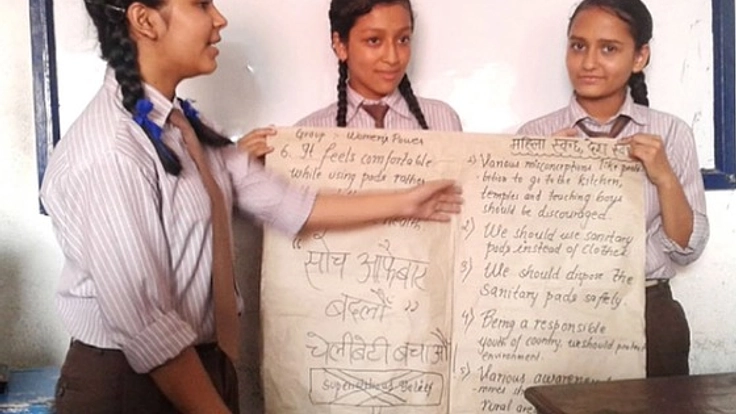 Group - Women's Power
6. It feels comfortable
while using pads rather
health.
"सोच आफैबार
बदलौं"
चेलीबेटी बचाऔं
महिला स्वच्छ, देश
1) Various misconceptions like
to go to the kitchen,
temples and touching boys
should be discouraged.
2) We should use sanitary
pads instead of clothes
3) We should dispose the
sanitary pads safely.
4) Being a responsible
youth of country, we should protect
environment.
5) Various
rural